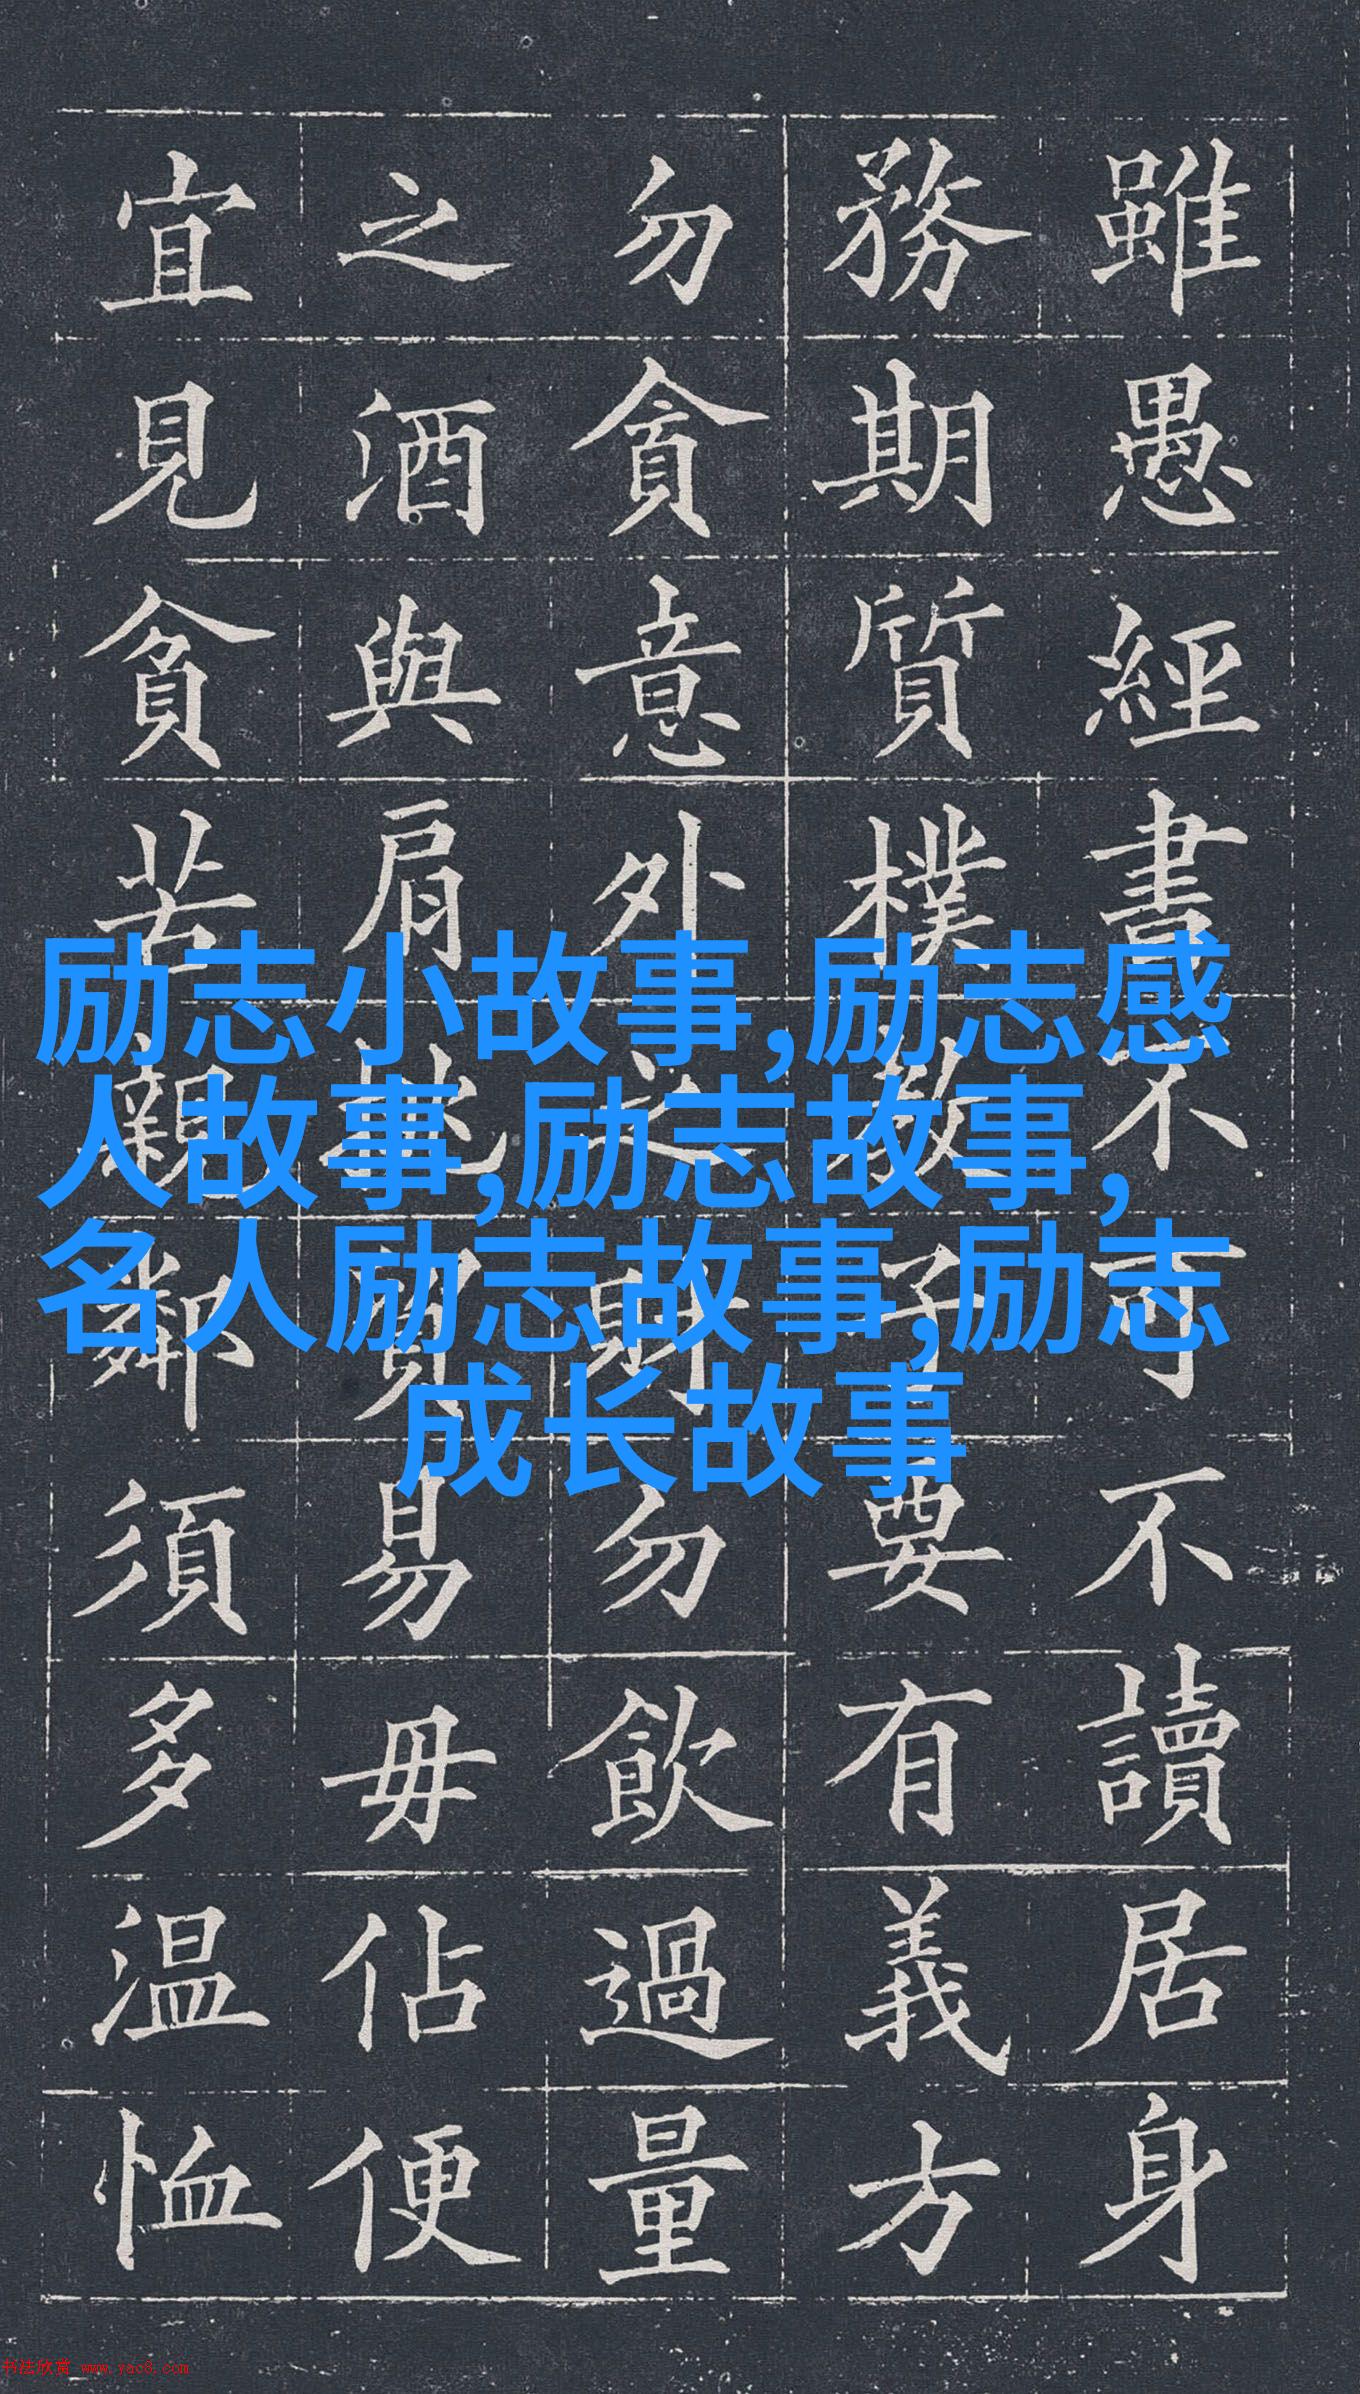 雖愚經書不可不讀居身
務期質樸教子要有義方
勿貪意外之財勿飲過量
之酒與肩挑貿易毋佔便
宜見貧苦親鄰須多温恤
励志小故事,励志感
人故事,励志故事,
名人励志故事,励志
成长故事
书法欣赏 www.yac8.com